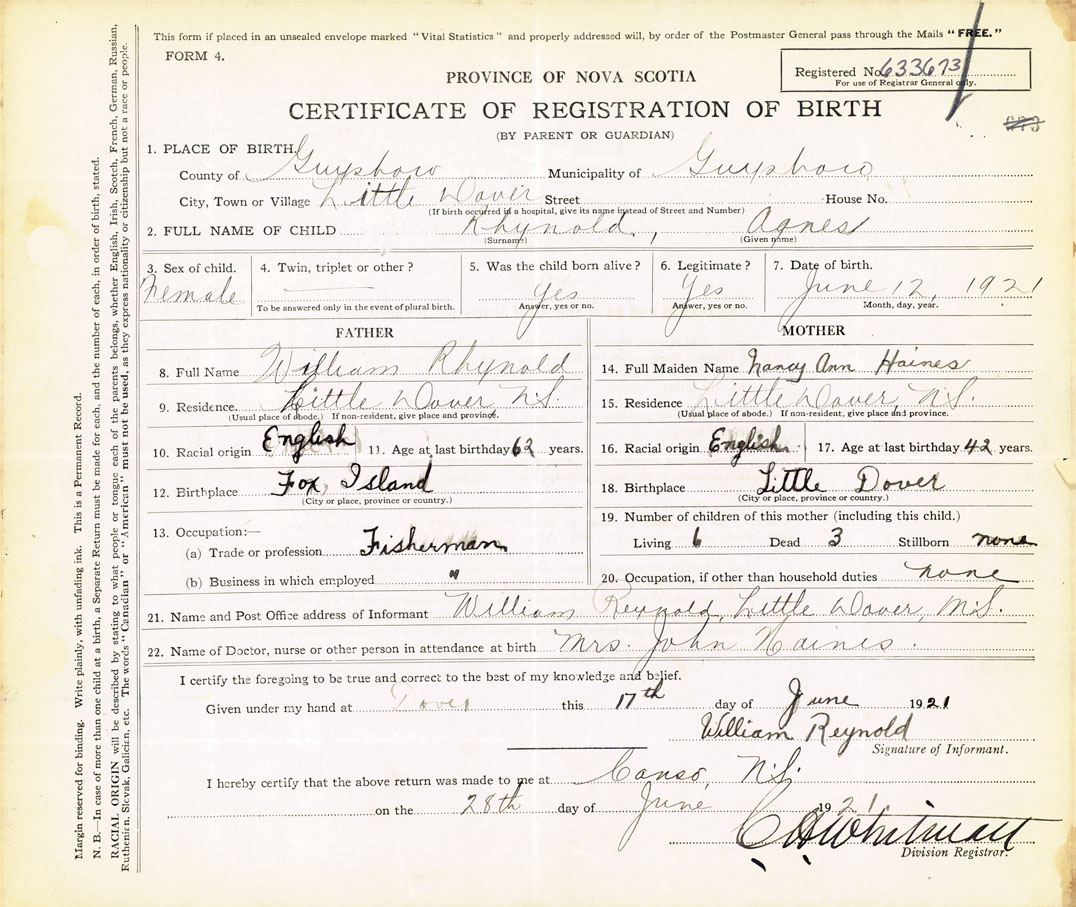 This form if placed in an unsealed envelope marked "Vital Statistics" and properly addressed will, by order of the Postmaster General pass through the Mails "FREE."
FORM 4.
Registered No. 633673
For use of Registrar General only.
PROVINCE OF NOVA SCOTIA
CERTIFICATE OF REGISTRATION OF BIRTH
(BY PARENT OR GUARDIAN)
1. PLACE OF BIRTH.
County of Guysboro Municipality of Guysboro
City, Town or Village Little Dover Street House No.
(If birth occurred in a hospital, give its name instead of Street and Number)
2. FULL NAME OF CHILD Rhynold, Agnes
(Surname) (Given name)
3. Sex of child. 4. Twin, triplet or other? 5. Was the child born alive? 6. Legitimate? 7. Date of birth.
Female Yes Yes June 12, 1921
To be answered only in the event of plural birth. Answer, yes or no. Answer, yes or no. Month, day, year.
FATHER
8. Full Name William Rhynold
9. Residence. Little Dover, N.S.
(Usual place of abode.) If non-resident, give place and province.
10. Racial origin English 11. Age at last birthday 62 years.
12. Birthplace Fox Island
(City or place, province or country.)
13. Occupation:—
(a) Trade or profession Fisherman
(b) Business in which employed "
MOTHER
14. Full Maiden Name Nancy Ann Haines
15. Residence Little Dover, N.S.
(Usual place of abode.) If non-resident, give place and province.
16. Racial origin English 17. Age at last birthday 42 years.
18. Birthplace Little Dover
(City or place, province or country.)
19. Number of children of this mother (including this child.)
Living 6 Dead 3 Stillborn none
20. Occupation, if other than household duties none
21. Name and Post Office address of Informant William Reynold, Little Dover, N.S.
22. Name of Doctor, nurse or other person in attendance at birth Mrs. John Haines.
I certify the foregoing to be true and correct to the best of my knowledge and belief.
Given under my hand at Dover this 17th day of June 1921
William Reynold
Signature of Informant.
I hereby certify that the above return was made to me at Canso, N.S.
on the 28th day of June 1921.
C H Whitman
Division Registrar.
Margin reserved for binding. Write plainly, with unfading ink. This is a Permanent Record.
N. B.—In case of more than one child at a birth, a Separate Return must be made for each, and the number of each, in order of birth, stated.
RACIAL ORIGIN will be described by stating to what people or tongue each of the parents belongs, whether English, Irish, Scotch, French, German, Russian,
Ruthenian, Slovak, Galician, etc. The words "Canadian" or "American" must not be used, as they express nationality or citizenship but not a race or people.